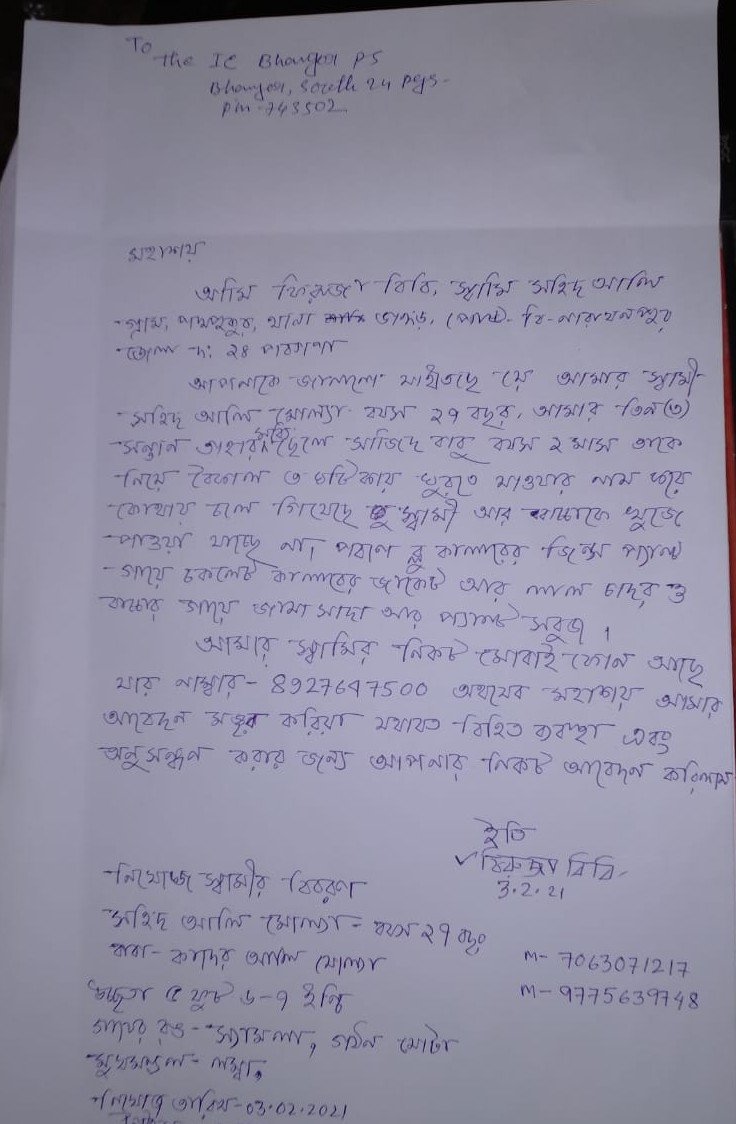 To
The IC Bhangar PS
Bhangar, South 24 Pgs-
Pin-743502
মহাশয়
আমি ফিরুজা বিবি, স্বামি সহিদ আলি
গ্রাম, পদ্মপুকুর, থানা ভাঙড়, পোষ্ট- বি-নারায়নপুর
জেলা দ: ২৪ পরগণা
আপনাকে জানানো যাইতেছে যে আমার স্বামী
সহিদ আলি মোল্যা বয়স ২৭ বছর, আমার তিন (৩)
সন্তান তাহার মধ্যে ছেলে সাজিদ বাবু বয়স ২ মাস তাকে
নিয়ে বৈকাল ৩ ঘটিকায় ঘুরতে যাওয়ার নাম করে
কোথায় চলে গিয়েছে স্বামী আর বাচ্চাকে খুজে
পাওয়া যাচ্ছে না, পরণে ব্লু কালারের জিন্স প্যান্ট
গায়ে চকলেট কালারের জ্যাকেট আর লাল চাদর ও
বাচ্চার গায়ে জামা সাদা আর প্যান্ট সবুজ।
আমার স্বামির নিকট মোবাই ফোন আছে
যার নাম্বার- 8927647500 অতএব মহাশয় আমার
আবেদন মঞ্জুর করিয়া যথাযত বিহিত ব্যবস্থা এবং
অনুসন্ধন করার জন্যে আপনার নিকট আবেদন করিলাম
ইতি
ফিরুজা বিবি
3.2.21
নিখোজ স্বামীর বিবরণ
সহিদ আলি মোল্যা - বয়স ২৭ বছর
বাবা- কাদের আলি মোল্যা
m- 7063071217
m- 9775639748
উচ্চতা ৫ ফুট ৬-৭ ইন্চি
গায়ের রঙ- স্যামলা, গঠন মোটা
মুখমণ্ডল- লম্বা,
নিখোজ তারিখ-03.02.2021